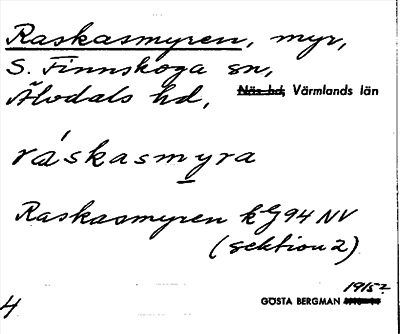 Raskasmyren, myr,
S. Finnskoga sn,
Älvdals hd, Näs hd, Värmlands län
ráskasmyra
Raskasmyren kG94 NV
(sektion 2)
1915?
GÖSTA BERGMAN
4